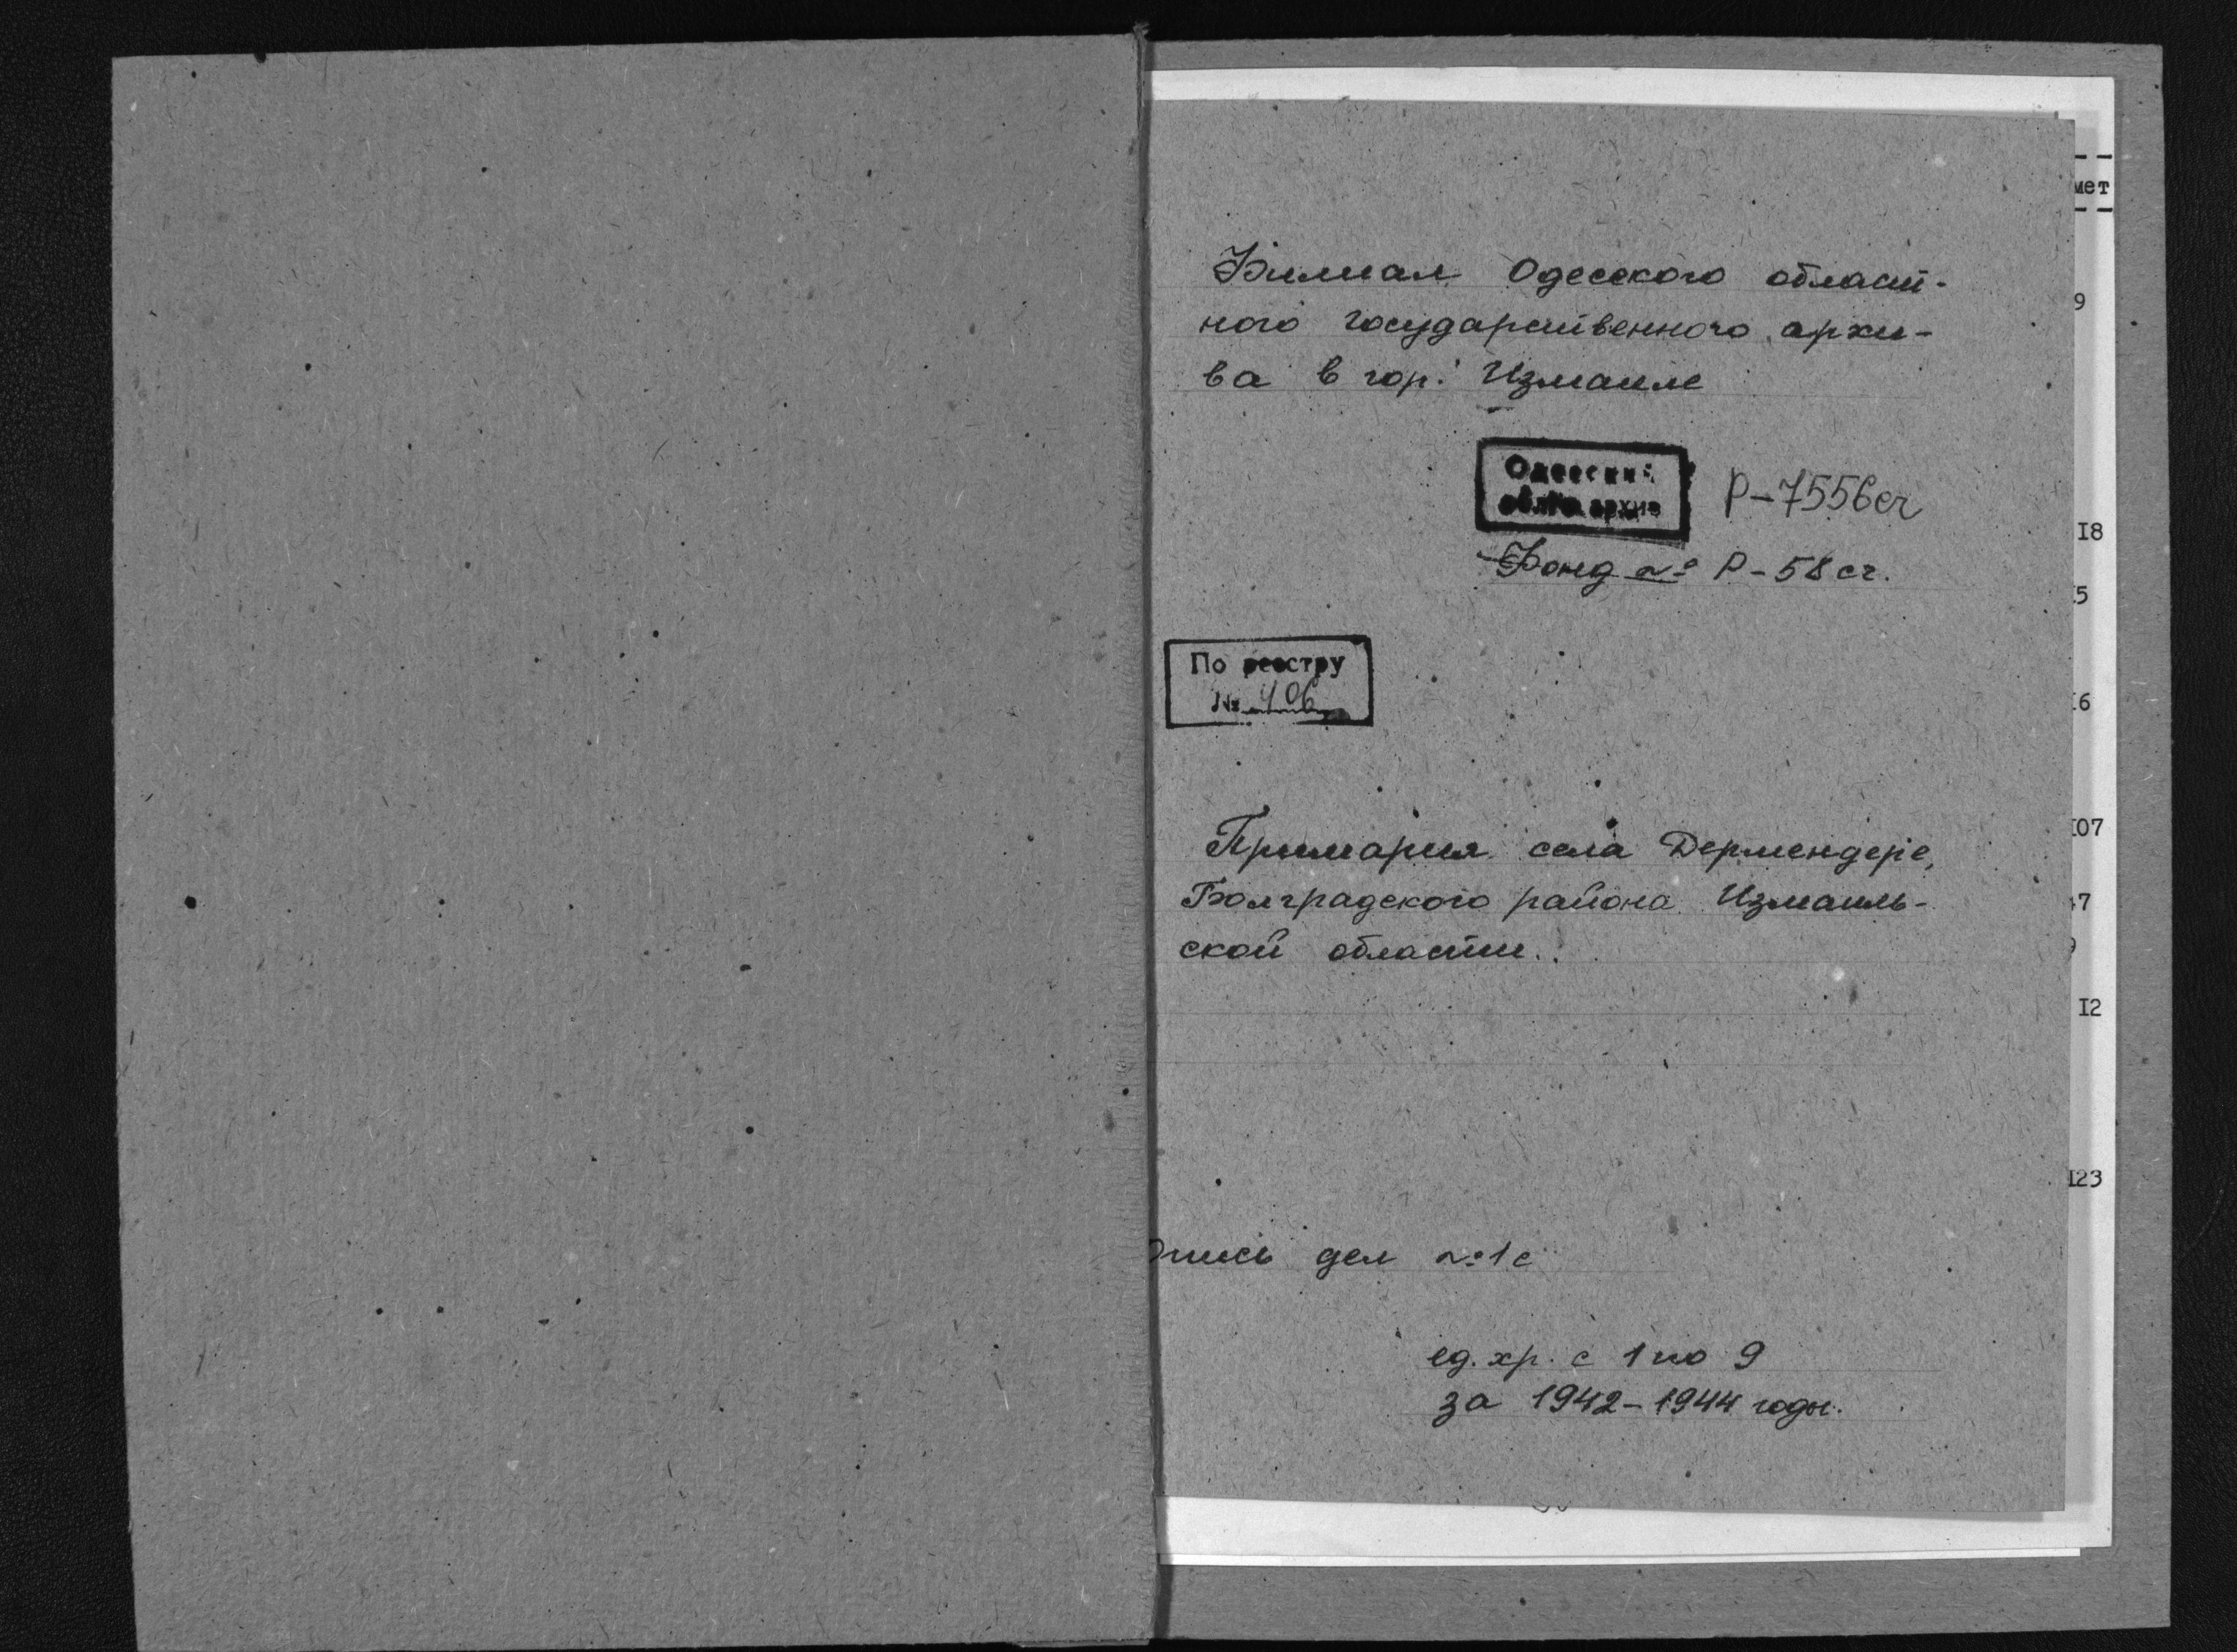 Филиал Одесского област-
ного государственного архи-
ва в гор. Измаиле
Одесский
облгосархив
Р-7556сч
Фонд № Р-58сг.
По реестру
№ 406
Примария села Дермендере,
Болградского района Измаиль-
ской области.
Опись дел №1с
ед. хр. с 1 по 9
за 1942-1944 годы.
мет
9
I8
I5
I6
I07
47
9
I2
I23